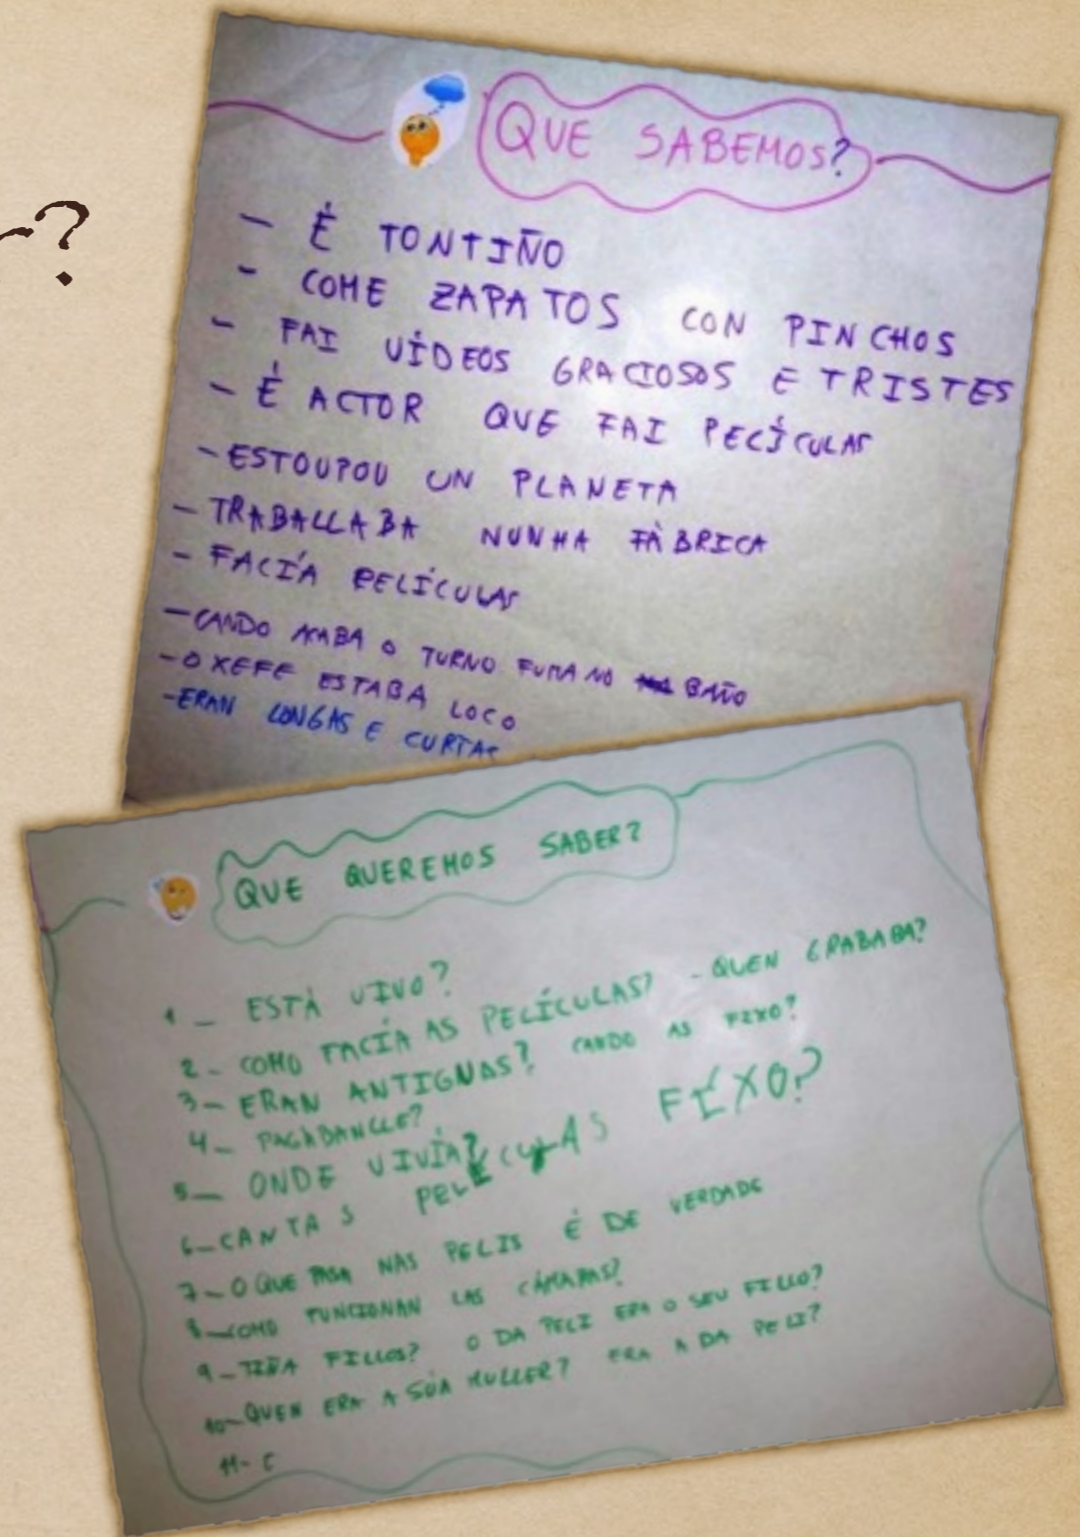 ?
QUE SABEMOS?
- É TONTIÑO
- COME ZAPATOS CON PINCHOS
- FAI VÍDEOS GRACIOSOS E TRISTES
- É ACTOR QUE FAI PELÍCULAS
- ESTOUPOU UN PLANETA
- TRABALLABA NUNHA FÀBRICA
- FACÍA PELÍCULAS
- CANDO AKABA O TURNO FUMA NO BAÑO
- O XEFE ESTABA LOCO
- ERAN LONGAS E CURTAS
QUE QUEREMOS SABER?
1 - ESTÁ VIVO?
2 - COMO FACÍA AS PELÍCULAS? - QUEN GRABABA?
3 - ERAN ANTIGUAS? CANDO AS FIXO?
4 - PAGÁBANLLE?
5 - ONDE VIVÍA?
6 - CANTAS PELÍCULAS FÍXO?
7 - O QUE PASA NAS PELIS É DE VERDADE
8 - COMO FUNCIONAN LAS CÁMARAS?
9 - TIÑA FILLOS? O DA PELI ERA O SEU FILLO?
10 - QUEN ERA A SÚA MULLER? ERA A DA PELI?
11 - C